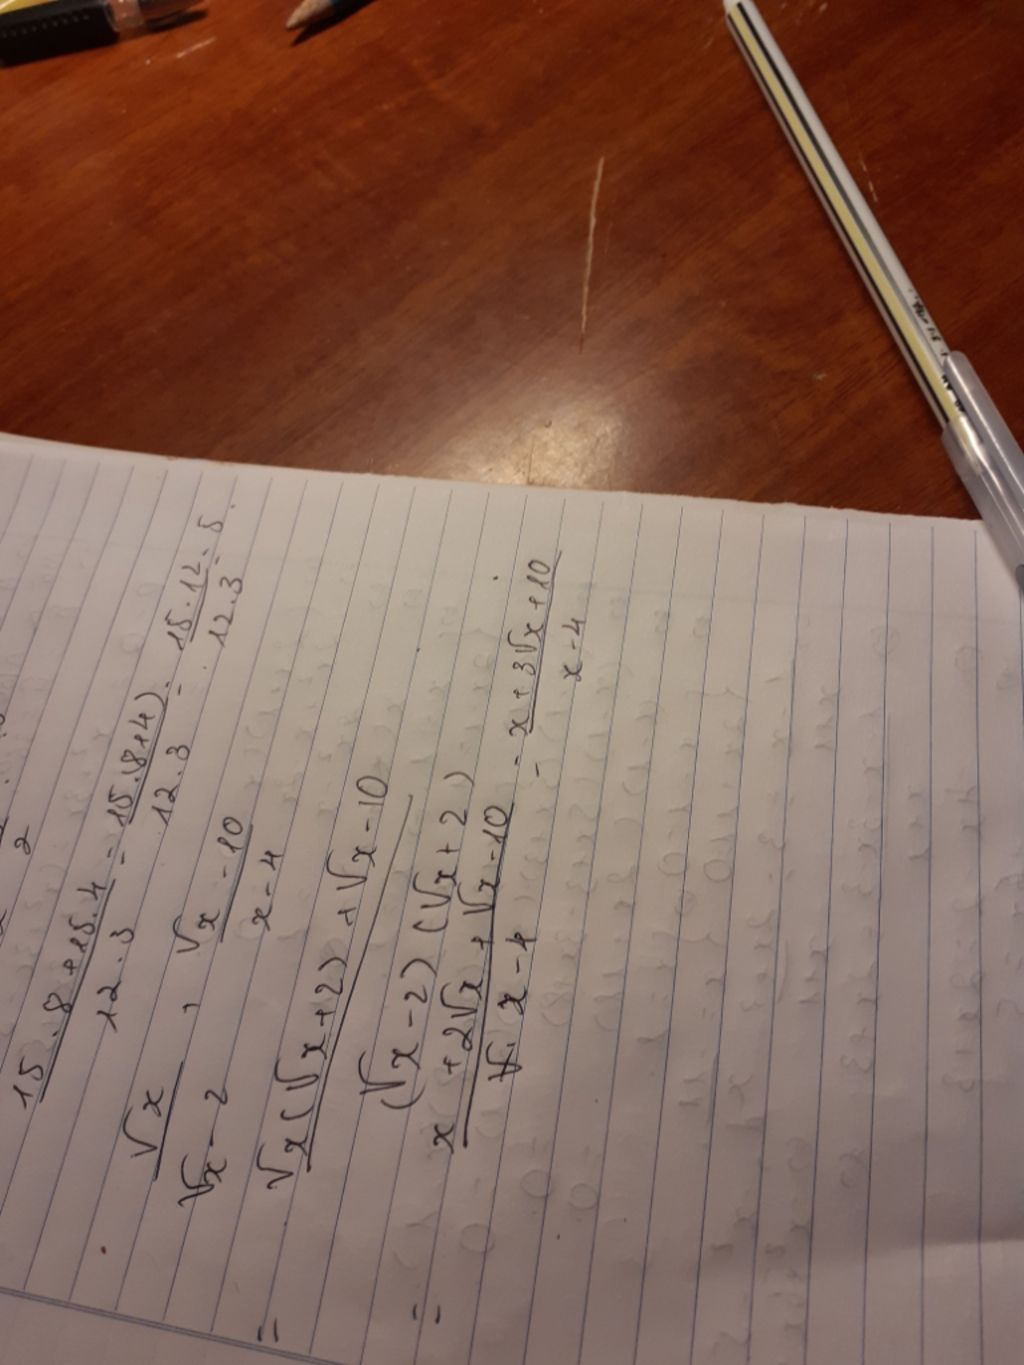 2
15.8+15.4 / 12.3 = 15.(8+4) / 12.3 = 15.12 / 12.3 = 5.
√x / √x-2 + √x-10 / x-4
= √x(√x+2) + √x-10 / (√x-2)(√x+2)
= x+2√x+√x-10 / x-4 = x+3√x+10 / x-4